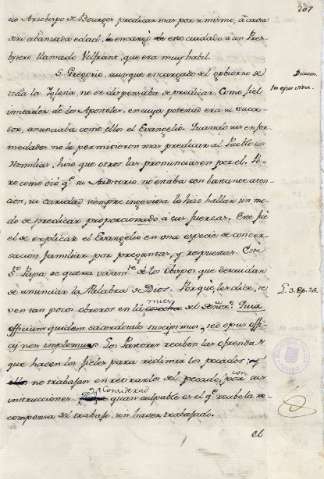 cio Arzobispo de Bourges predicar mas por si mismo, á causa
de su abanzada edad, lo encargó de este cuidado á un Pres-
bytero llamado Vulfrano, que era muy habil.
S. Gregorio, aunque encargado del gobierno de
toda la Iglesia no se dispensaba de predicar. Como fiel
imitador de los Apostoles, en cuya potestad era su succe-
sor, anunciaba como ellos el Evangelio. Quando sus enfer-
medades no le permitieron mas predicar al Pueblo sus
Homilias, hizo que otros las pronunciasen por el. Pe-
ro como vió q.e su Auditorio no estaba con bastante aten-
cion, su caridad siempre ingeniosa le hizo hallar un mo-
do de predicar proporcionado á sus fuerzas. Este fué
el de explicar el Evangelio en una especie de conver-
sacion familiar por preguntas, y respuestas. Este
S.to Papa se quexa de los Obispos que descuidan
de anunciar la Palabra de Dios. Porque, les dice, se
ven tan pocos obreros en la mies del Señor. Quia
officium quidem sacerdotale suscepimus, sed opus offi-
cij non implemus. Los Pastores reciben las ofrendas
que hacen los fieles para redimir los pecados, y
no trabajan en retirarlos del pecado, con sus
instrucciones. quan culpable es el q.e recibe la re-
compensa del trabajo sin haver trabajado.
el
307
L. 3. Ep. 26